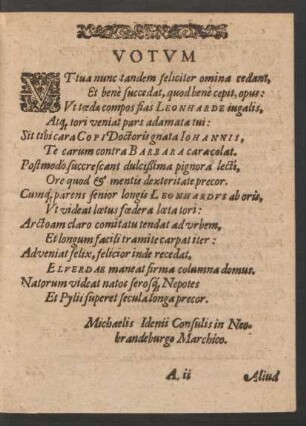 VOTVM
VT tua nunc tandem feliciter omina cedant,
Et benè succedat, quod benè cepit, opus:
Vt tædæ compos fias LEONHARDE iugalis,
Atq; tori veniat pars adamata tui:
Sit tibi cara COPI Doctoris gnata IOHANNIS,
Te carum contra BARBARA cara colat.
Postmodo succrescant dulcißima pignora lecti,
Ore quod & mentis dexteritate precor.
Cumq; parens senior longis LEONHARDVS ab oris,
Vt videat lætus fœdera læta tori:
Arctoam claro comitatu tendat ad vrbem,
Et longum facili tramite carpat iter:
Adveniat felix, felicior inde recedat,
ELVERDAE maneat firma columna domus.
Natorum videat natos serosq; Nepotes
Et Pylii superet secula longa precor.
Michaelis Idenii Consulis in Neo-
brandeburgo Marchico.
A ii
Aliud